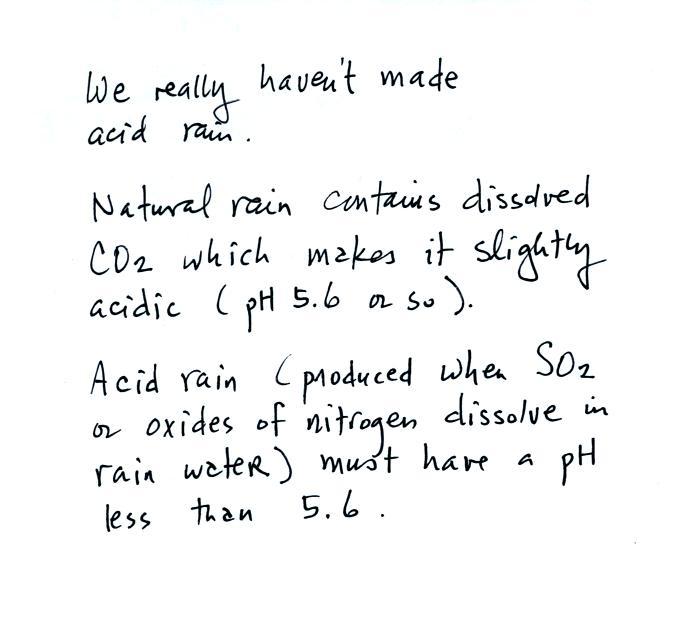 We really haven't made
acid rain.
Natural rain contains dissolved
CO2 which makes it slightly
acidic (pH 5.6 or so).
Acid rain (produced when SO2
or oxides of nitrogen dissolve in
rain water) must have a pH
less than 5.6.